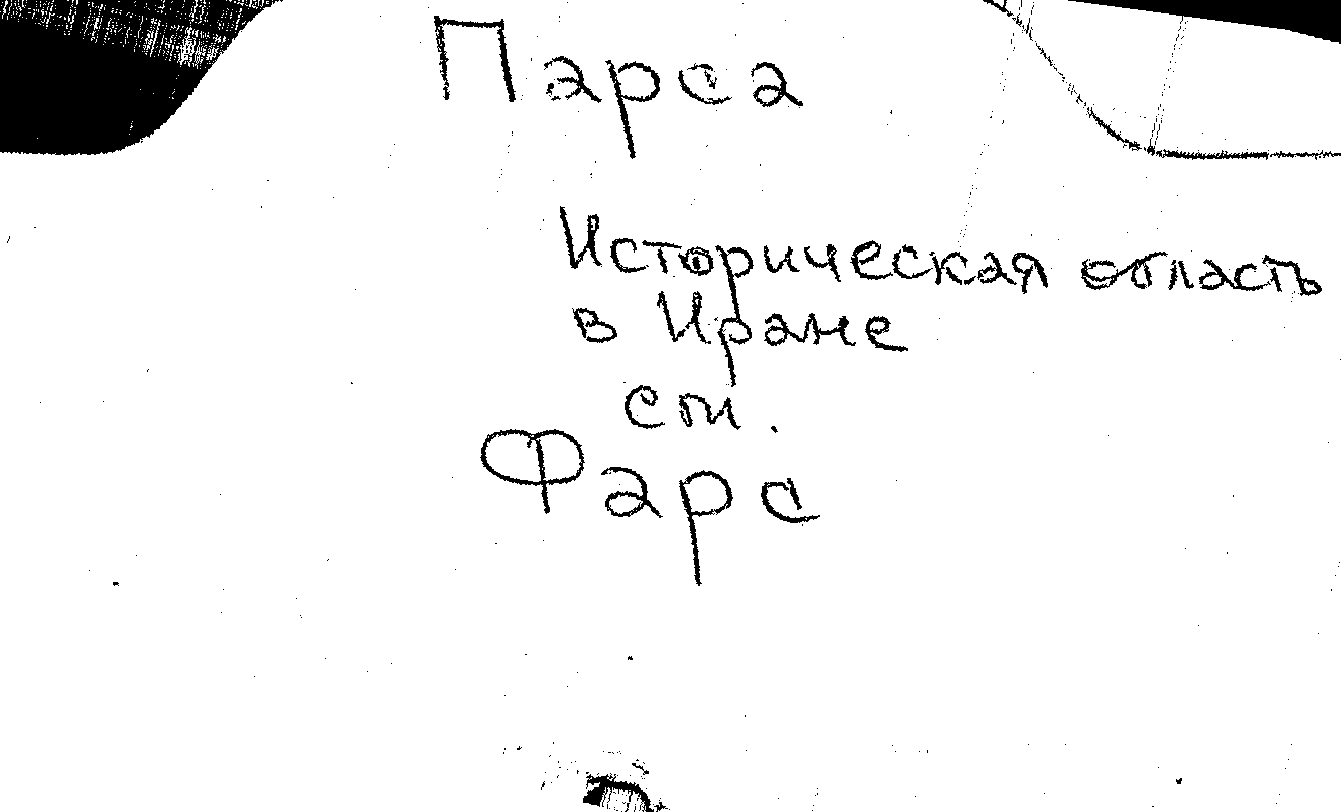 Парса
Историческая область
в Иране
см.
Фарс